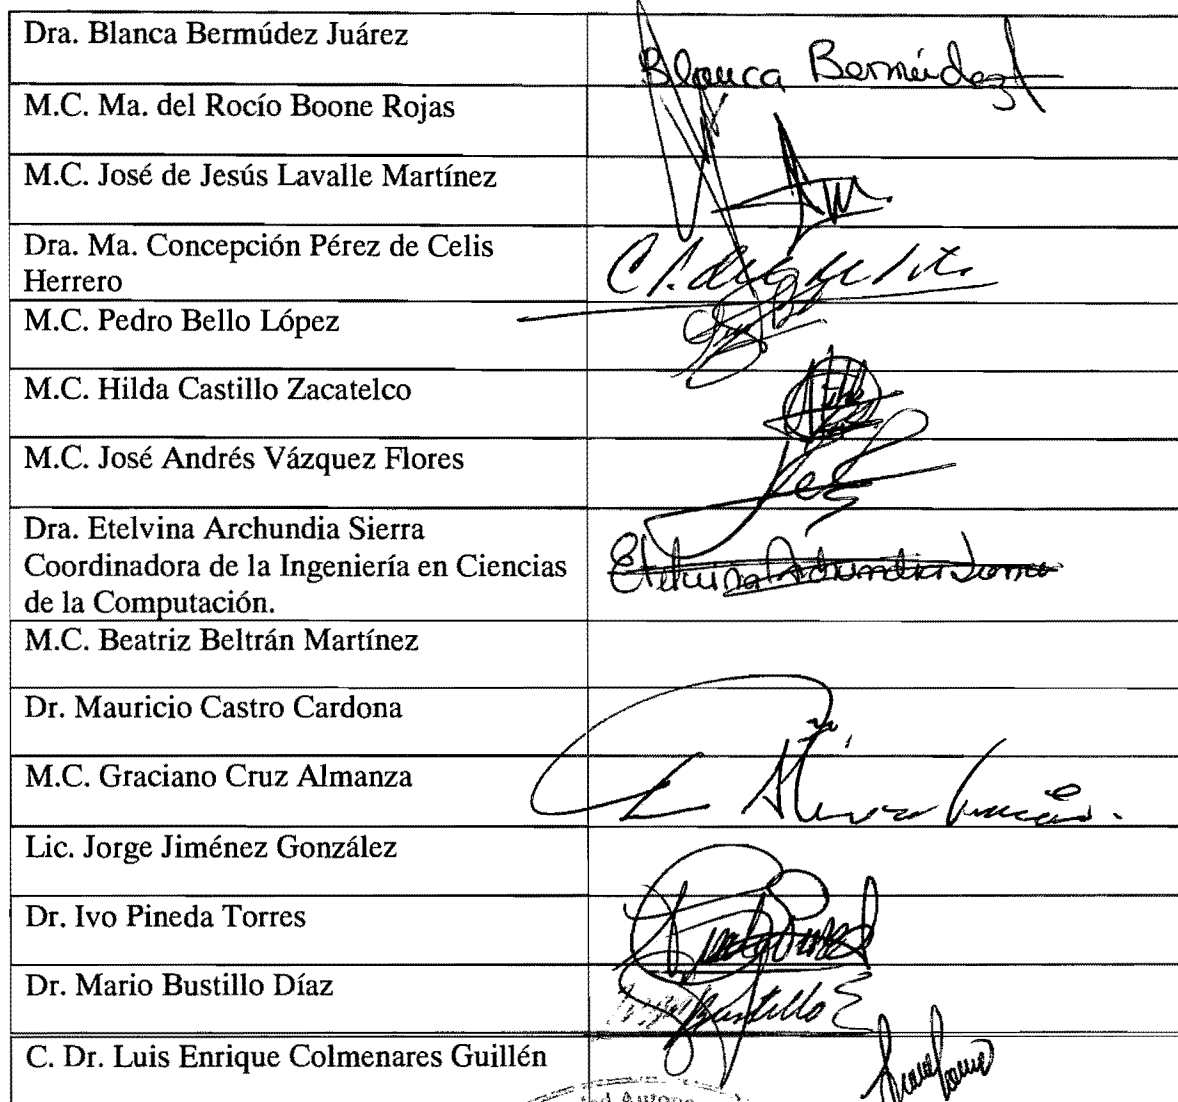 Dra. Blanca Bermúdez Juárez
Blanca Bermúdez
M.C. Ma. del Rocío Boone Rojas
M.C. José de Jesús Lavalle Martínez
Dra. Ma. Concepción Pérez de Celis
Herrero
M.C. Pedro Bello López
M.C. Hilda Castillo Zacatelco
M.C. José Andrés Vázquez Flores
Dra. Etelvina Archundia Sierra
Coordinadora de la Ingeniería en Ciencias
de la Computación.
Etelvina Archundia Sierra
M.C. Beatriz Beltrán Martínez
Dr. Mauricio Castro Cardona
M.C. Graciano Cruz Almanza
Lic. Jorge Jiménez González
Dr. Ivo Pineda Torres
Dr. Mario Bustillo Díaz
Bustillo
C. Dr. Luis Enrique Colmenares Guillén